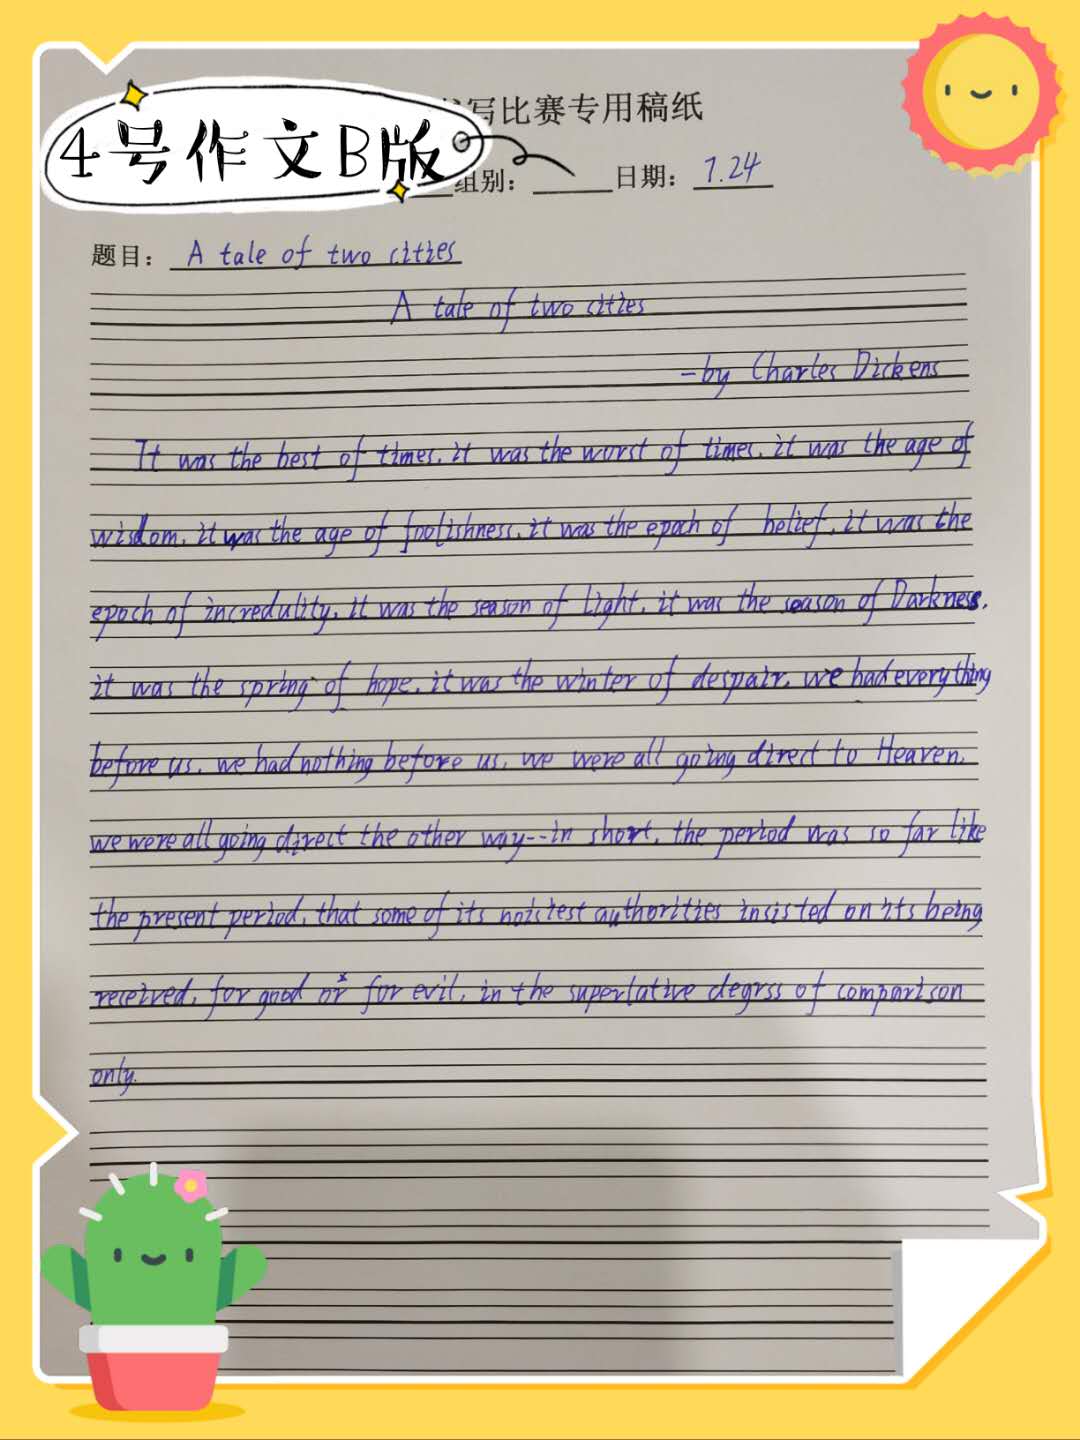 书写比赛专用稿纸
4号作文B版
组别： 日期：7.24
题目：A tale of two cities
A tale of two cities
-by Charles Dickens
It was the best of times, it was the worst of times, it was the age of
wisdom, it was the age of foolishness, it was the epoch of belief, it was the
epoch of incredulity, it was the season of Light, it was the season of Darkness,
it was the spring of hope, it was the winter of despair, we had everything
before us, we had nothing before us, we were all going direct to Heaven,
we were all going direct the other way--in short, the period was so far like
the present period, that some of its noisiest authorities insisted on its being
received, for good or for evil, in the superlative degrss of comparison
only.